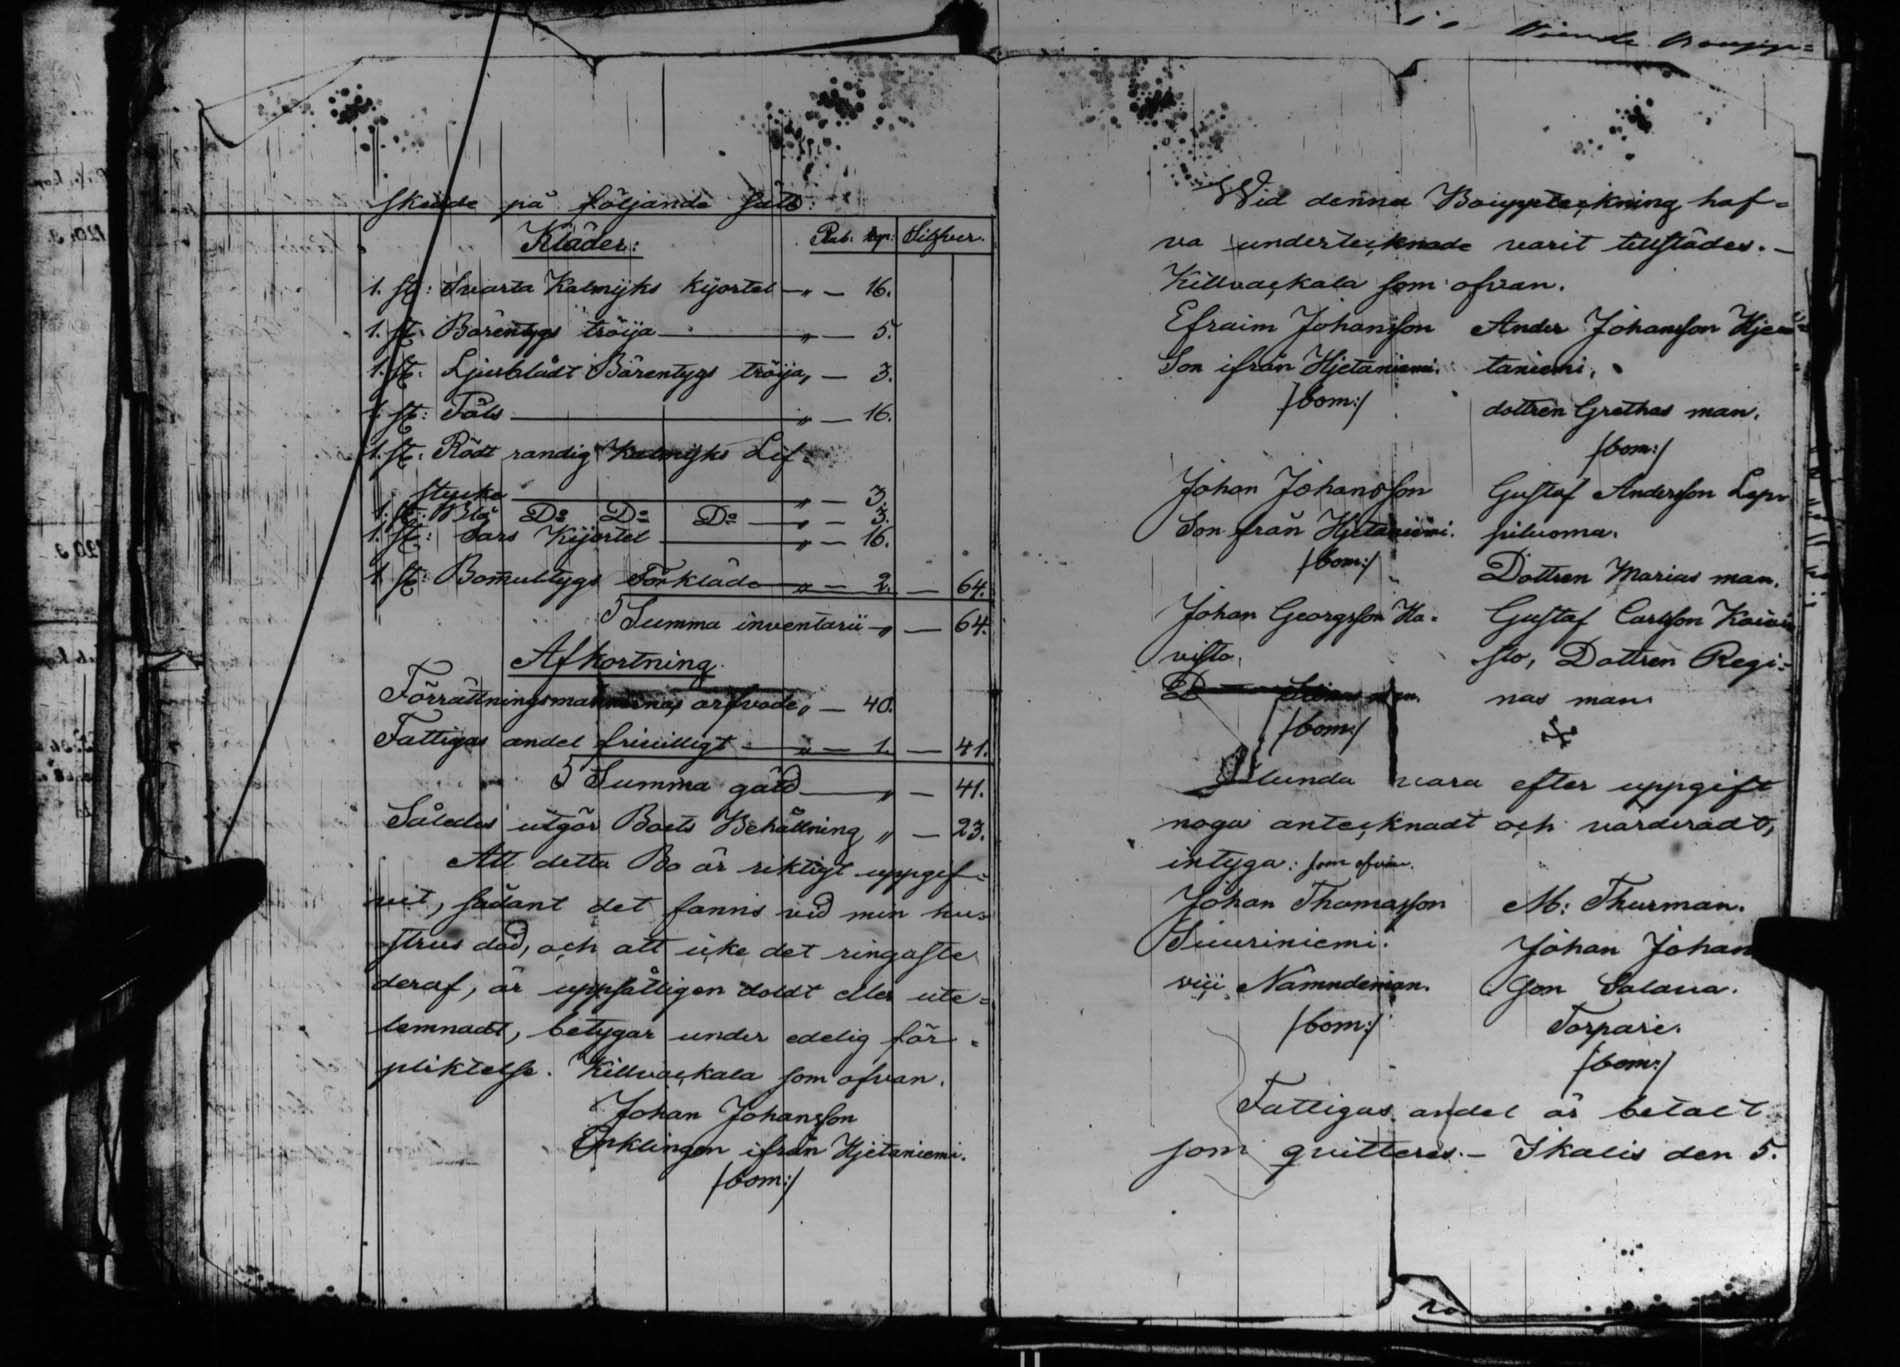 skedde på följande sätt:
Kläder: Rub: kp: Silfver.
1. st: Svarta Kalmyks kijortel — „ — 16.
1. st: Bärentygs tröija — „ — 5.
1. st: Ljusblådt Bärentygs tröija, — 3.
1. st: Fäls — „ — 16.
1. st: Rödt randig Kalmyks Lif-
stycke — „ — 3.
1. st: Blå Do Do Do — „ — 3.
1. st: Sars Kijortel — „ — 16.
1. st: Bomulltygs Förkläde — „ — 2. — 64.
Summa inventarii — „ — 64.
Afkortning.
Förrättningsmännernas arfvode „ — 40.
Fattigas andel frivilligt — „ — 1. — 41.
Summa gäld — „ — 41.
Således utgör Boets Behållning „ — 23.
Att detta Bo är riktigt uppgif=
vit, sådant det fanns vid min hus-
strus död, och att icke det ringaste
deraf, är uppsåtligen doldt eller ute=
lemnadt, betygar under edelig för=
pliktelse. Killvackala som ofvan.
Johan Johansson
Enklingen ifrån Hjetaniemi.
/bom:/
Wid denna Bouppteckning haf=
va undertecknade varit tillstädes. —
Killvackala som ofvan.
Efraim Johansson
Son ifrån Hjetaniemi.
/bom:/
Ander Johansson Hje
taniemi.
dottren Grethas man.
/bom:/
Johan Johansson
Son från Hjetaniemi.
/bom:/
Gustaf Andersson Lep
piluoma.
Dottren Marias man.
Johan Georgsson Ha=
visto.
/bom:/
Gustaf Carlsson Koivi
sto, Dottren Regi=
nas man.
Ålunda vara efter uppgift
noga antecknadt och värderadt,
intyga: som ofvan.
Johan Thomasson
Suuriniemi.
Nämndeman.
/bom:/
M: Thurman.
Johan Johan
son Salava.
Torpare.
/bom:/
Fattigas andel är betalt
som qvitteras. — Ikalis den 5.